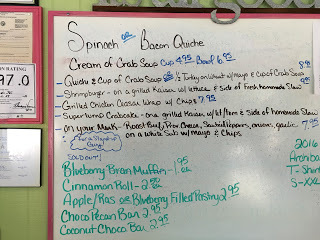 Spinach or Bacon Quiche
Cream of Crab Soup Cup 4.95 Bowl 6.95
- Quiche & Cup of Crab Soup 8.95
1/2 Turkey on Wheat w/mayo & Cup of Crab Soup
- Shrimpburger - on a grilled Kaiser w/ lettuce & side of Fresh homemade Slaw
- Grilled Chicken Caesar Wrap w/ Chips 7.95
- Superlump Crabcake - on a grilled Kaiser w/ let/tom & side of homemade Slaw
on your Mark - Roast Beef, Prov Cheese, Sauteed peppers, onions, garlic 7.95
on a white Sub w/ mayo & Chips
SOLD OUT!
Blueberry Bran Muffin - 1.95
Cinnamon Roll - 2.50
Apple/Ras or Blueberry Filled Pastry 2.95
Choco Pecan Bar 2.95
Coconut Choco Bar 2.95
2016
T-Shirt
S-XX
RATING
97.0